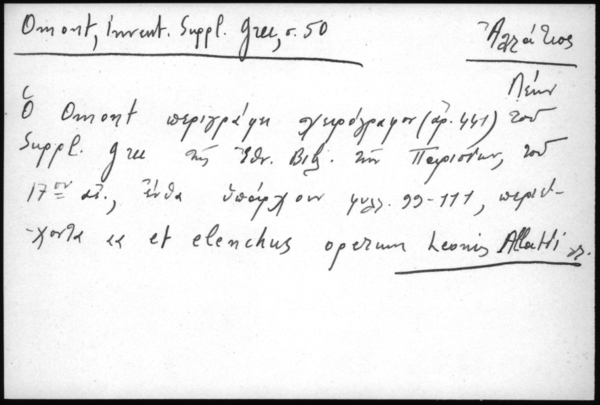 Omont, Invent. Suppl. Grec, σ. 50
Ἀλλάτιος
Λέων
Ὁ Omont περιγράφει χειρόγραφον (ἀρ. 441) τοῦ
Suppl. grec τῆς Ἐθν. Βιβ. τῶν Παρισίων, τοῦ
17ου αἰ., ἔνθα ὑπάρχουν φυλλ. 99-111, περιέ-
-χοντα et elenchus operum Leonis Allatii